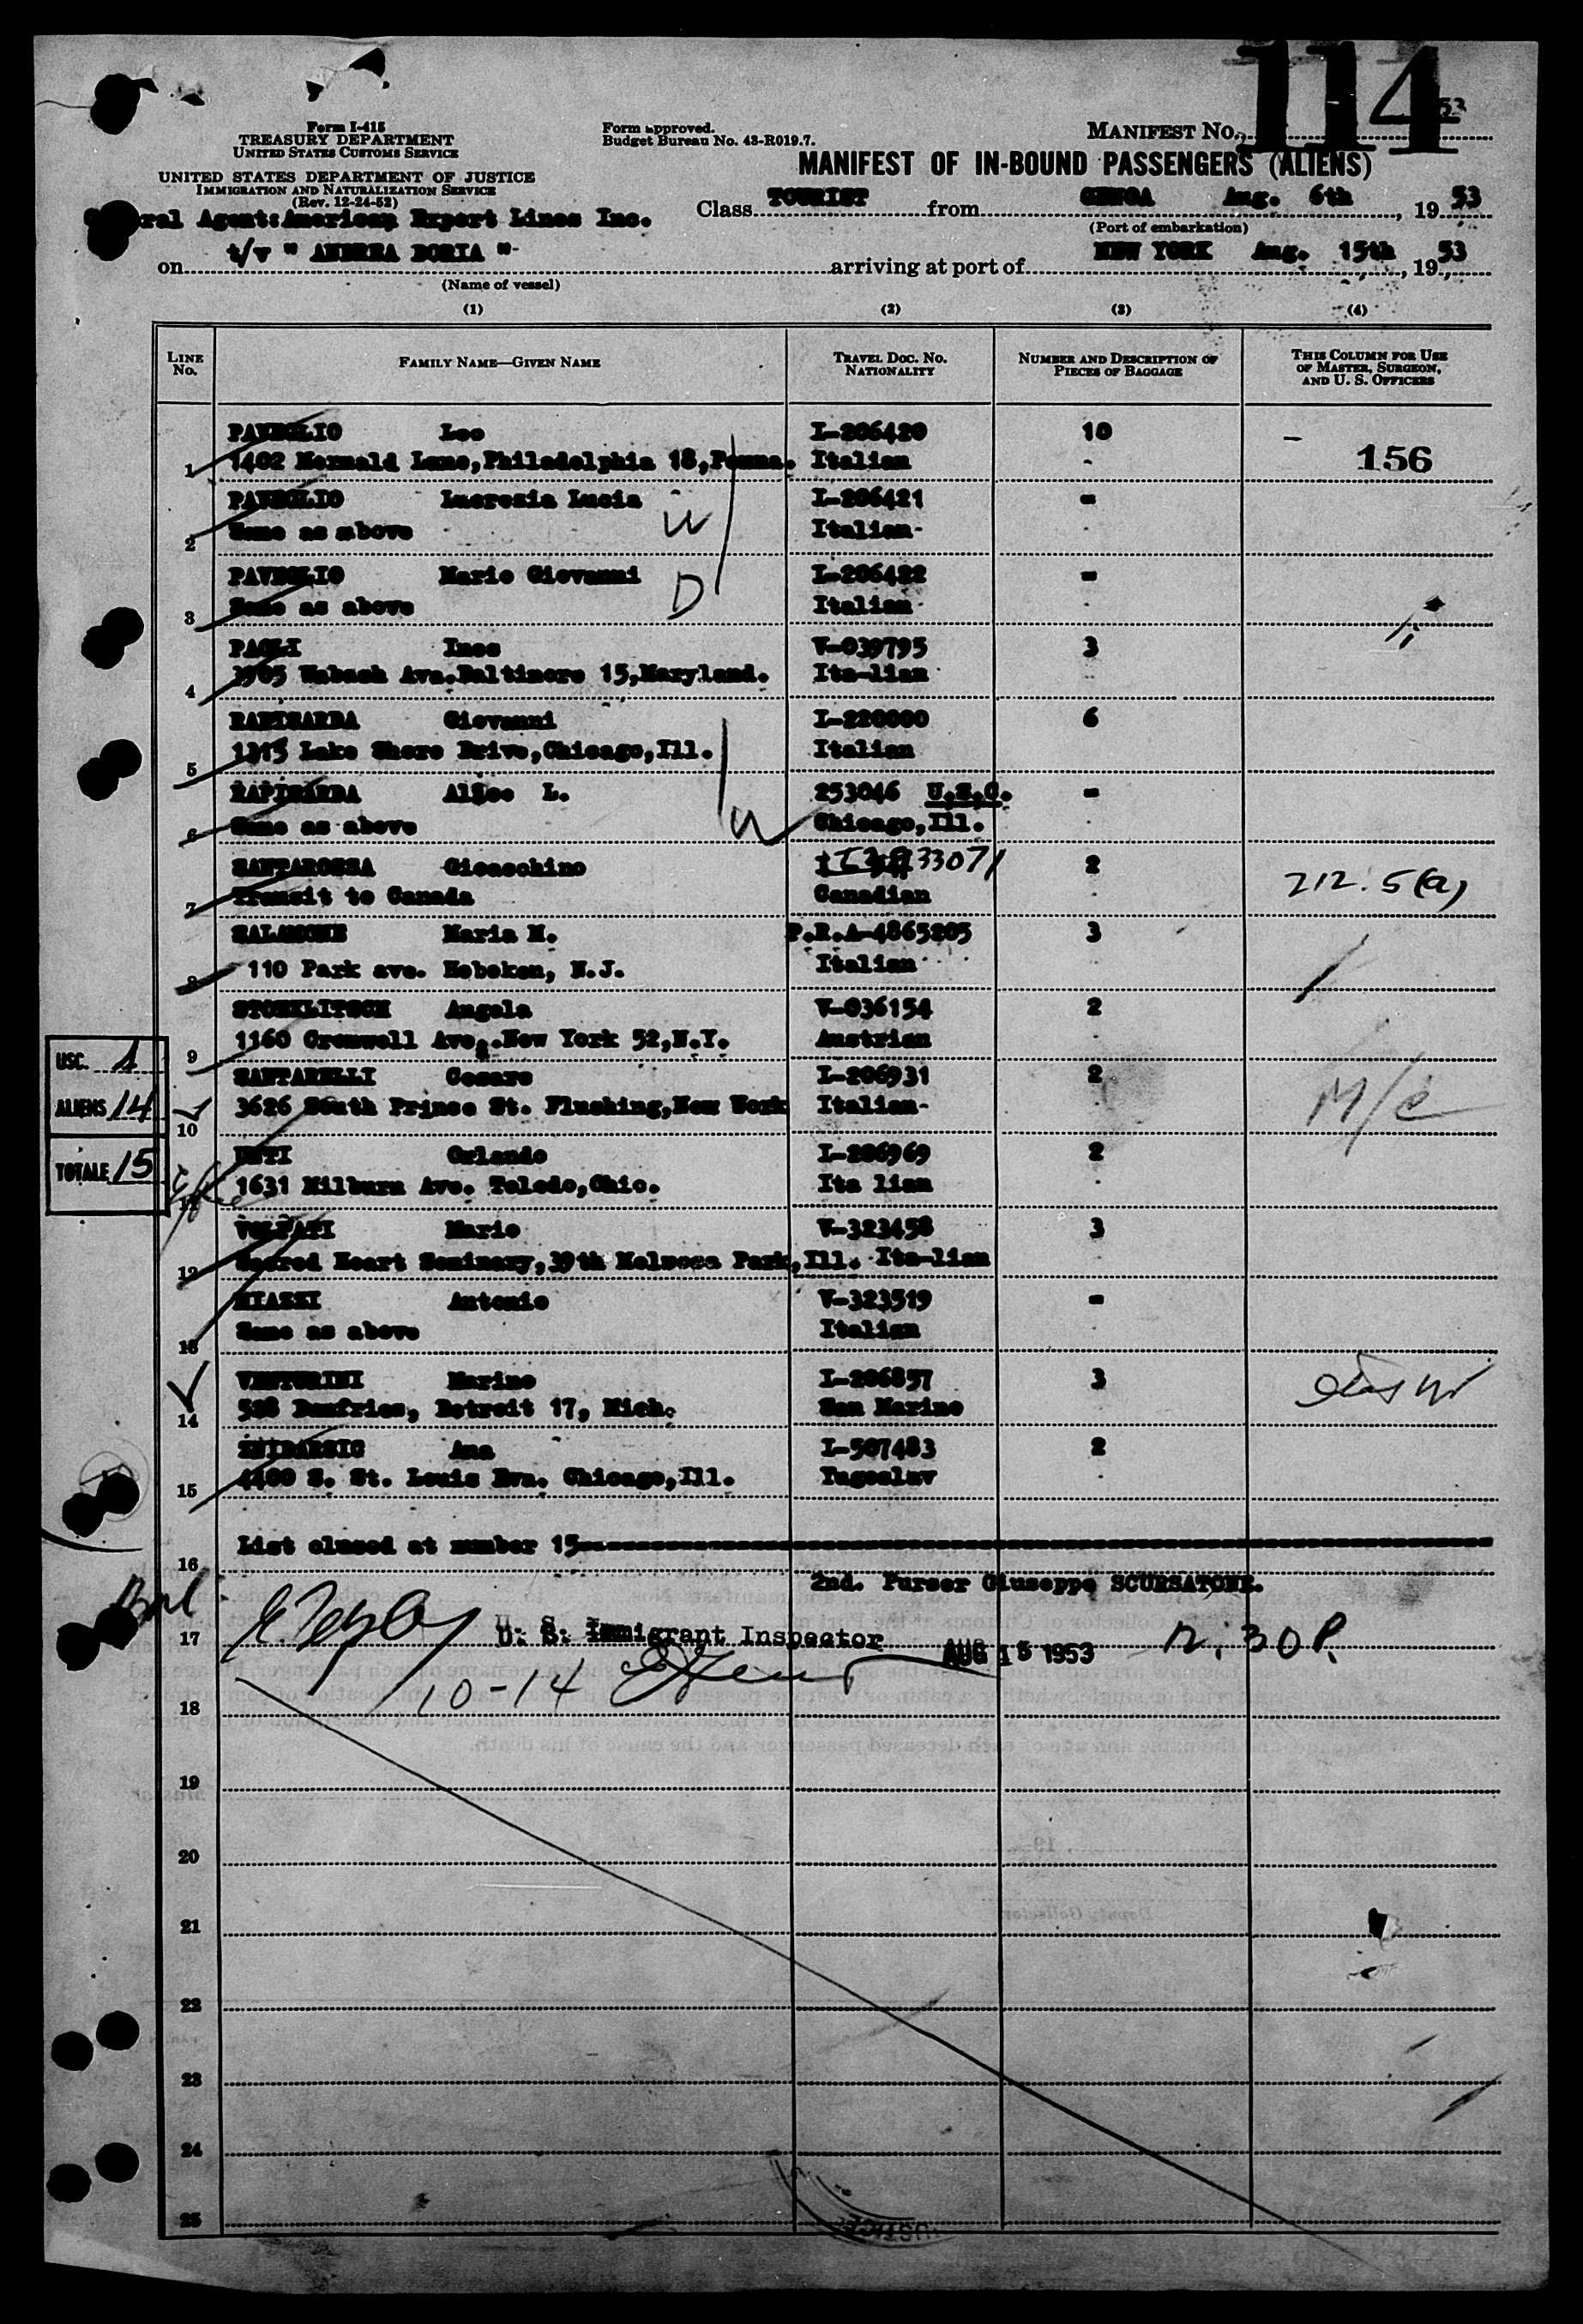 114
53
Form I-415
TREASURY DEPARTMENT
UNITED STATES CUSTOMS SERVICE
UNITED STATES DEPARTMENT OF JUSTICE
IMMIGRATION AND NATURALIZATION SERVICE
(Rev. 12-24-52)
Form approved.
Budget Bureau No. 43-R019.7.
MANIFEST No.
MANIFEST OF IN-BOUND PASSENGERS (ALIENS)
ral Agent:American Export Lines Inc.
Class TOURIST from GENOA Aug. 6th, 1953
(Port of embarkation)
on t/v " ANDREA DORIA " arriving at port of NEW YORK Aug. 15th, 1953
(Name of vessel)
(1) (2) (3) (4)
LINE No. FAMILY NAME—GIVEN NAME TRAVEL DOC. No. NATIONALITY NUMBER AND DESCRIPTION OF PIECES OF BAGGAGE THIS COLUMN FOR USE OF MASTER, SURGEON, AND U. S. OFFICERS
PAVEGLIO Leo I-206420 10 -
1 1402 Mermaid Lane,Philadelphia 18,Penna. Italian 156
PAVEGLIO Lucrezia Lucia I-206421 -
2 Same as above W Italian
PAVEGLIO Mario Giovanni I-206422 -
3 Same as above D Italian
PAOLI Ines V-039795 3
4 3905 Wabash Ave.Baltimore 15,Maryland. Ita-lian
RAPISARDA Giovanni I-220000 6
5 1215 Lake Shore Drive,Chicago,Ill. Italian
RAPISARDA Alice L. 253046 U.S.C. -
6 Same as above W Chicago,Ill.
SANTAROSSA Gioacchino 33071 2
7 Transit to Canada Canadian 212.5(a)
SALAMONE Maria M. P.R.A-4865205 3
8 110 Park ave. Hoboken, N.J. Italian
Angela V-036154 2
9 1160 Cromwell Ave.New York 52,N.Y. Austrian
SANTARELLI Cesare I-206931 2
10 3626 South Prince St. Flushing,New York Italian M/C
Orlando I-206969 2
11 1631 Milburn Ave. Toledo,Ohio. Ita lian
Mario V-323458 3
12 Sacred Heart Seminary,39th Melrose Park,Ill. Ita-lian
Antonio V-323519 -
13 Same as above Italian
VENTURINI Marino I-206857 3
14 Dumfries, Detroit 17, Mich. San Marino
Ana I-507483 2
15 4400 S. St. Louis Eva. Chicago,Ill. Yugoslav
USC. 1
ALIENS 14
TOTALE 15
List closed at number 15
16
2nd. Purser Giuseppe SCURSATONE.
17 U. S. Immigrant Inspector AUG 15 1953 12.30P.
10-14
18
19
20
21
22
23
24
25